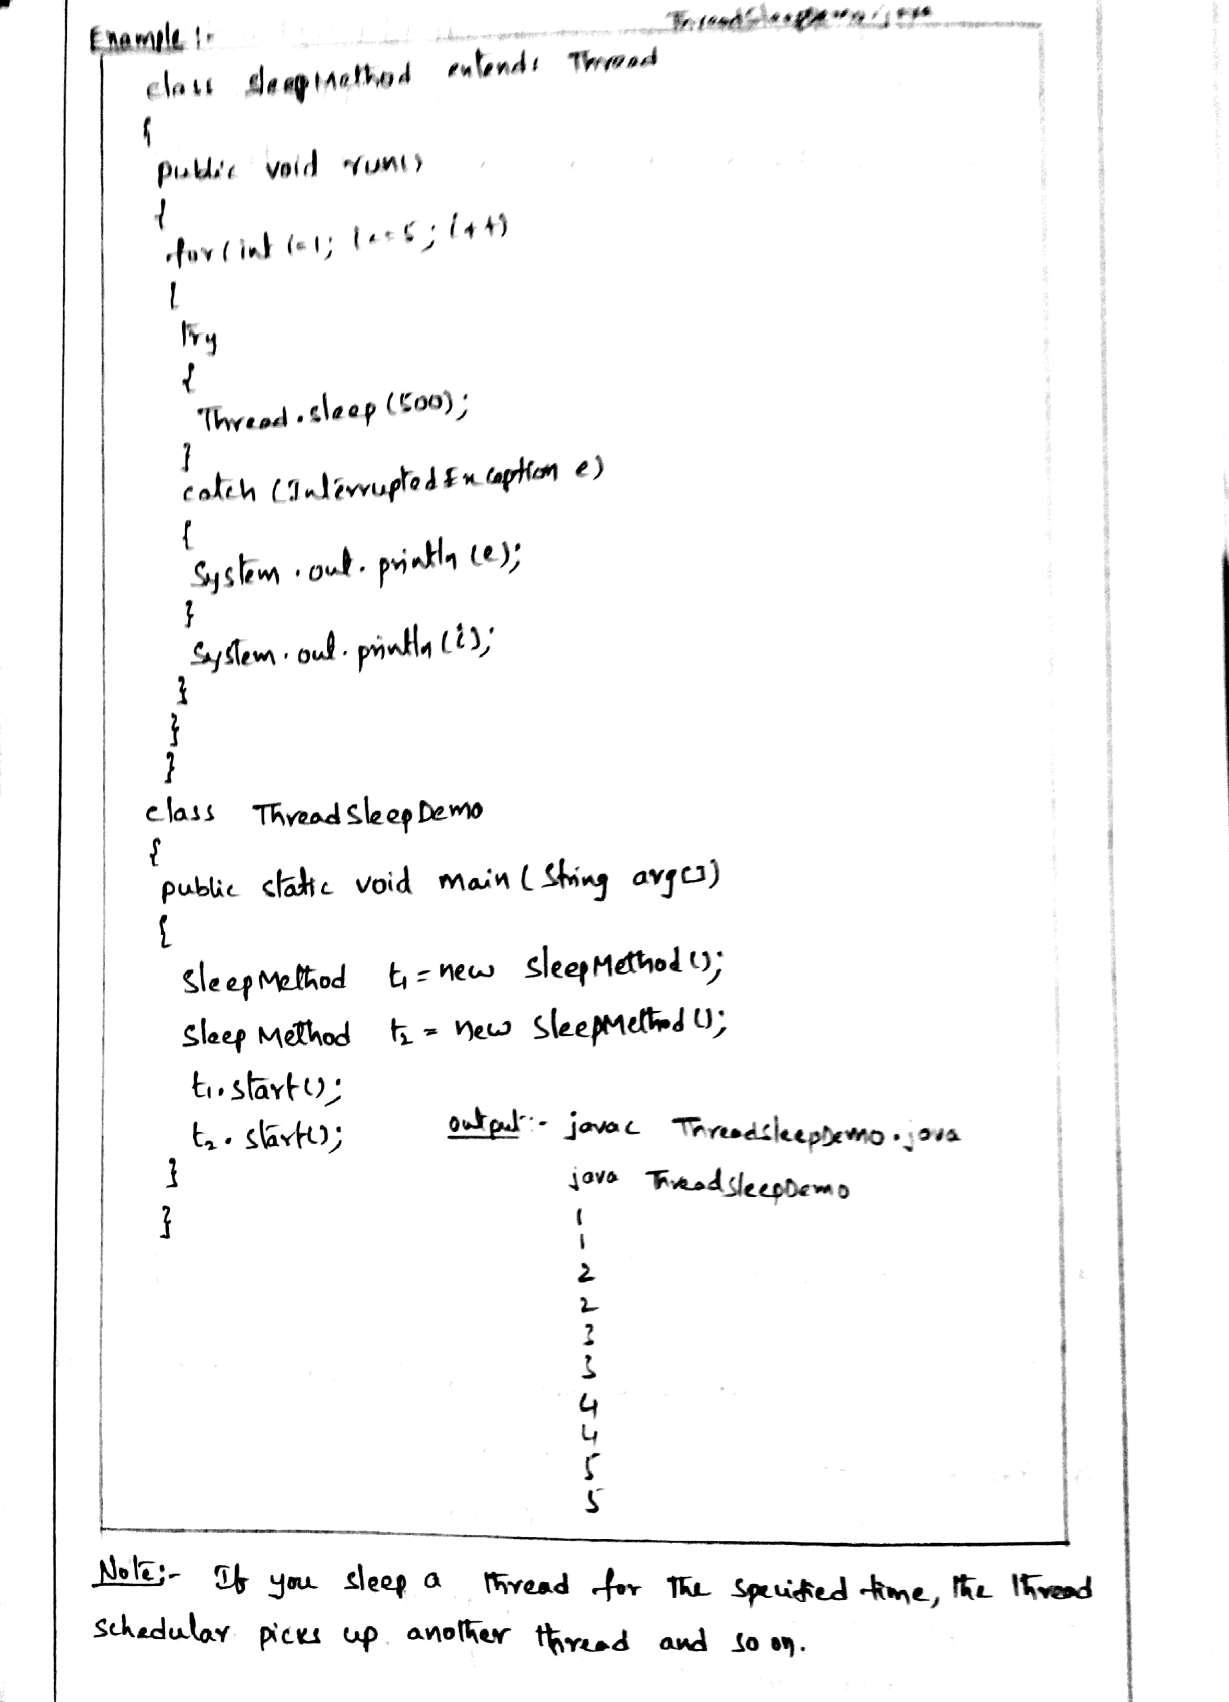 Example :-
ThreadSleepDemo.java
class SleepMethod extends Thread
{
public void run()
{
for(int i=1; i<=5; i++)
{
try
{
Thread.sleep(500);
}
catch (InterruptedException e)
{
System.out.println(e);
}
System.out.println(i);
}
}
}
class ThreadSleepDemo
{
public static void main(String arg[])
{
SleepMethod t1 = new SleepMethod();
SleepMethod t2 = new SleepMethod();
t1.start();
t2.start();
}
}
output:- javac ThreadSleepDemo.java
java ThreadSleepDemo
1
1
2
2
3
3
4
4
5
5
Note:- If you sleep a thread for the specified time, the thread
schedular picks up another thread and so on.